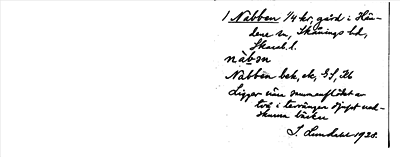 1 Nabben 1/4 kr, gård i Hän-
dene sn, Skånings hd,
Skarab. l.
nàbən
Nabben bek, ek, GS, Jb
Ligger nära sammanflödet av
två i terrängen djupt ned-
skurna bäckar
I. Lundahl 1928.